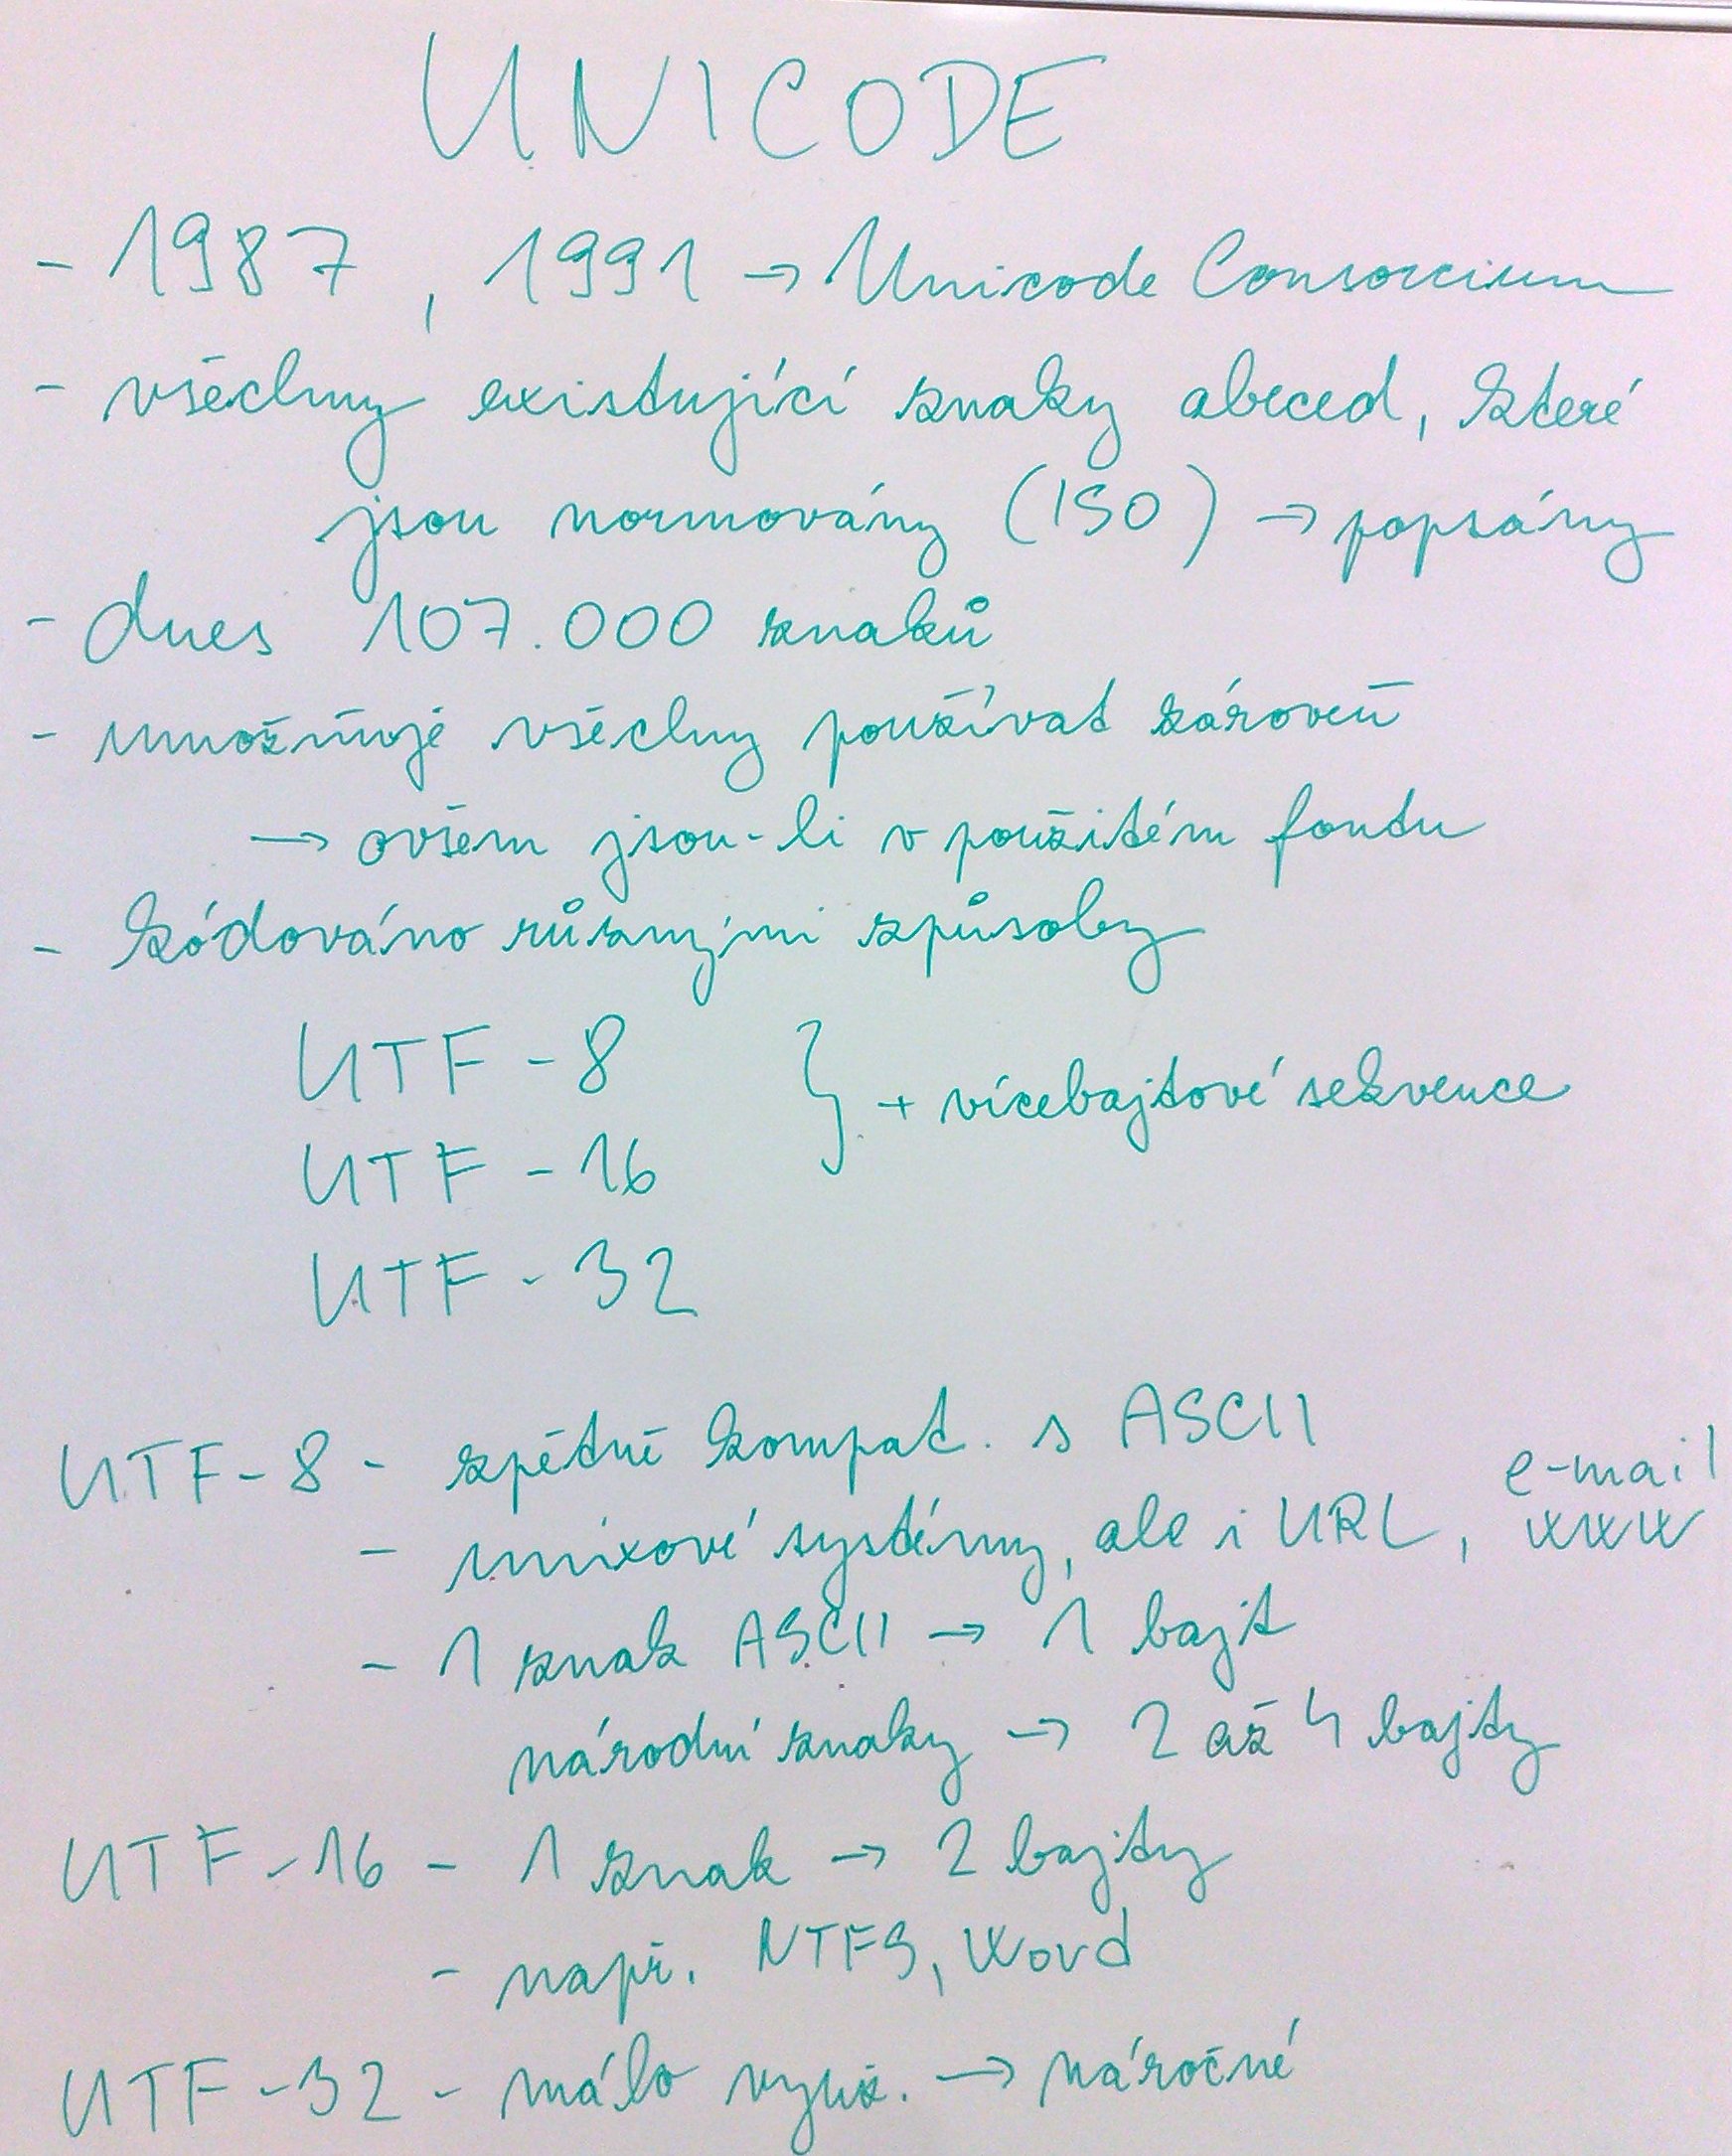 UNICODE
- 1987, 1991 → Unicode Consorcium
- všechny existující znaky abeced, které
jsou normovány (ISO) → popsány
- dnes 107.000 znaků
- umožňuje všechny používat zároveň
→ ovšem jsou-li v použitém fondu
- kódováno různými způsoby
UTF-8 } + vícebajtové sekvence
UTF-16
UTF-32
UTF-8 - zpětně kompat. s ASCII
e-mail
- unixové systémy, ale i URL, WWW
- 1 znak ASCII → 1 bajt
národní znaky → 2 až 4 bajty
UTF-16 - 1 znak → 2 bajty
- např. NTFS, Word
UTF-32 - málo využ. → náročné